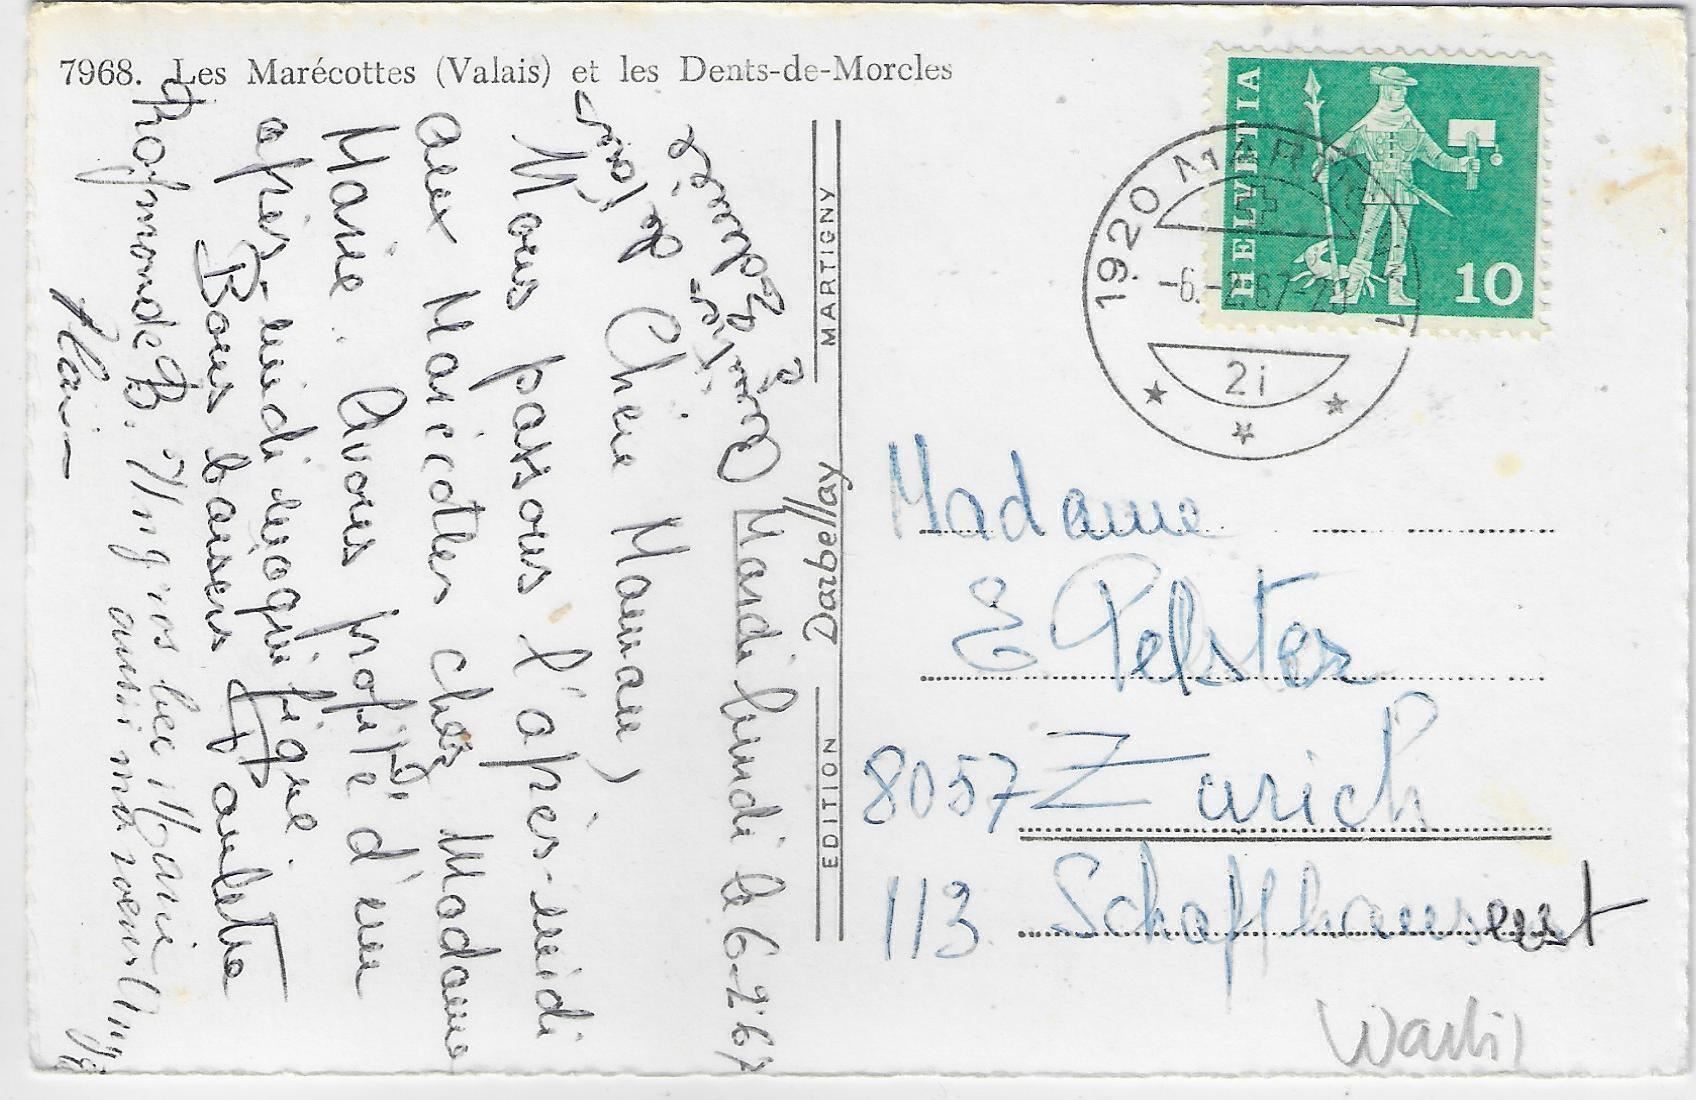 7968. Les Marécottes (Valais) et les Dents-de-Morcles
HELVETIA
10
1920 MARTIGNY 1
-6.-2.67-2
2i
EDITION Darbellay MARTIGNY
Mardi lundi le 6-2-67
Chère Maman,
Nous passons l'après-midi
aux Marécottes chez Madame
Marie. Avons profité d'un
après-midi magnifique
Bons baisers
Rosmonde B. gros bec Marie
aussi ma
Alain
Madame
E Pelster
8057 Zurich
113 Schaffhauserst